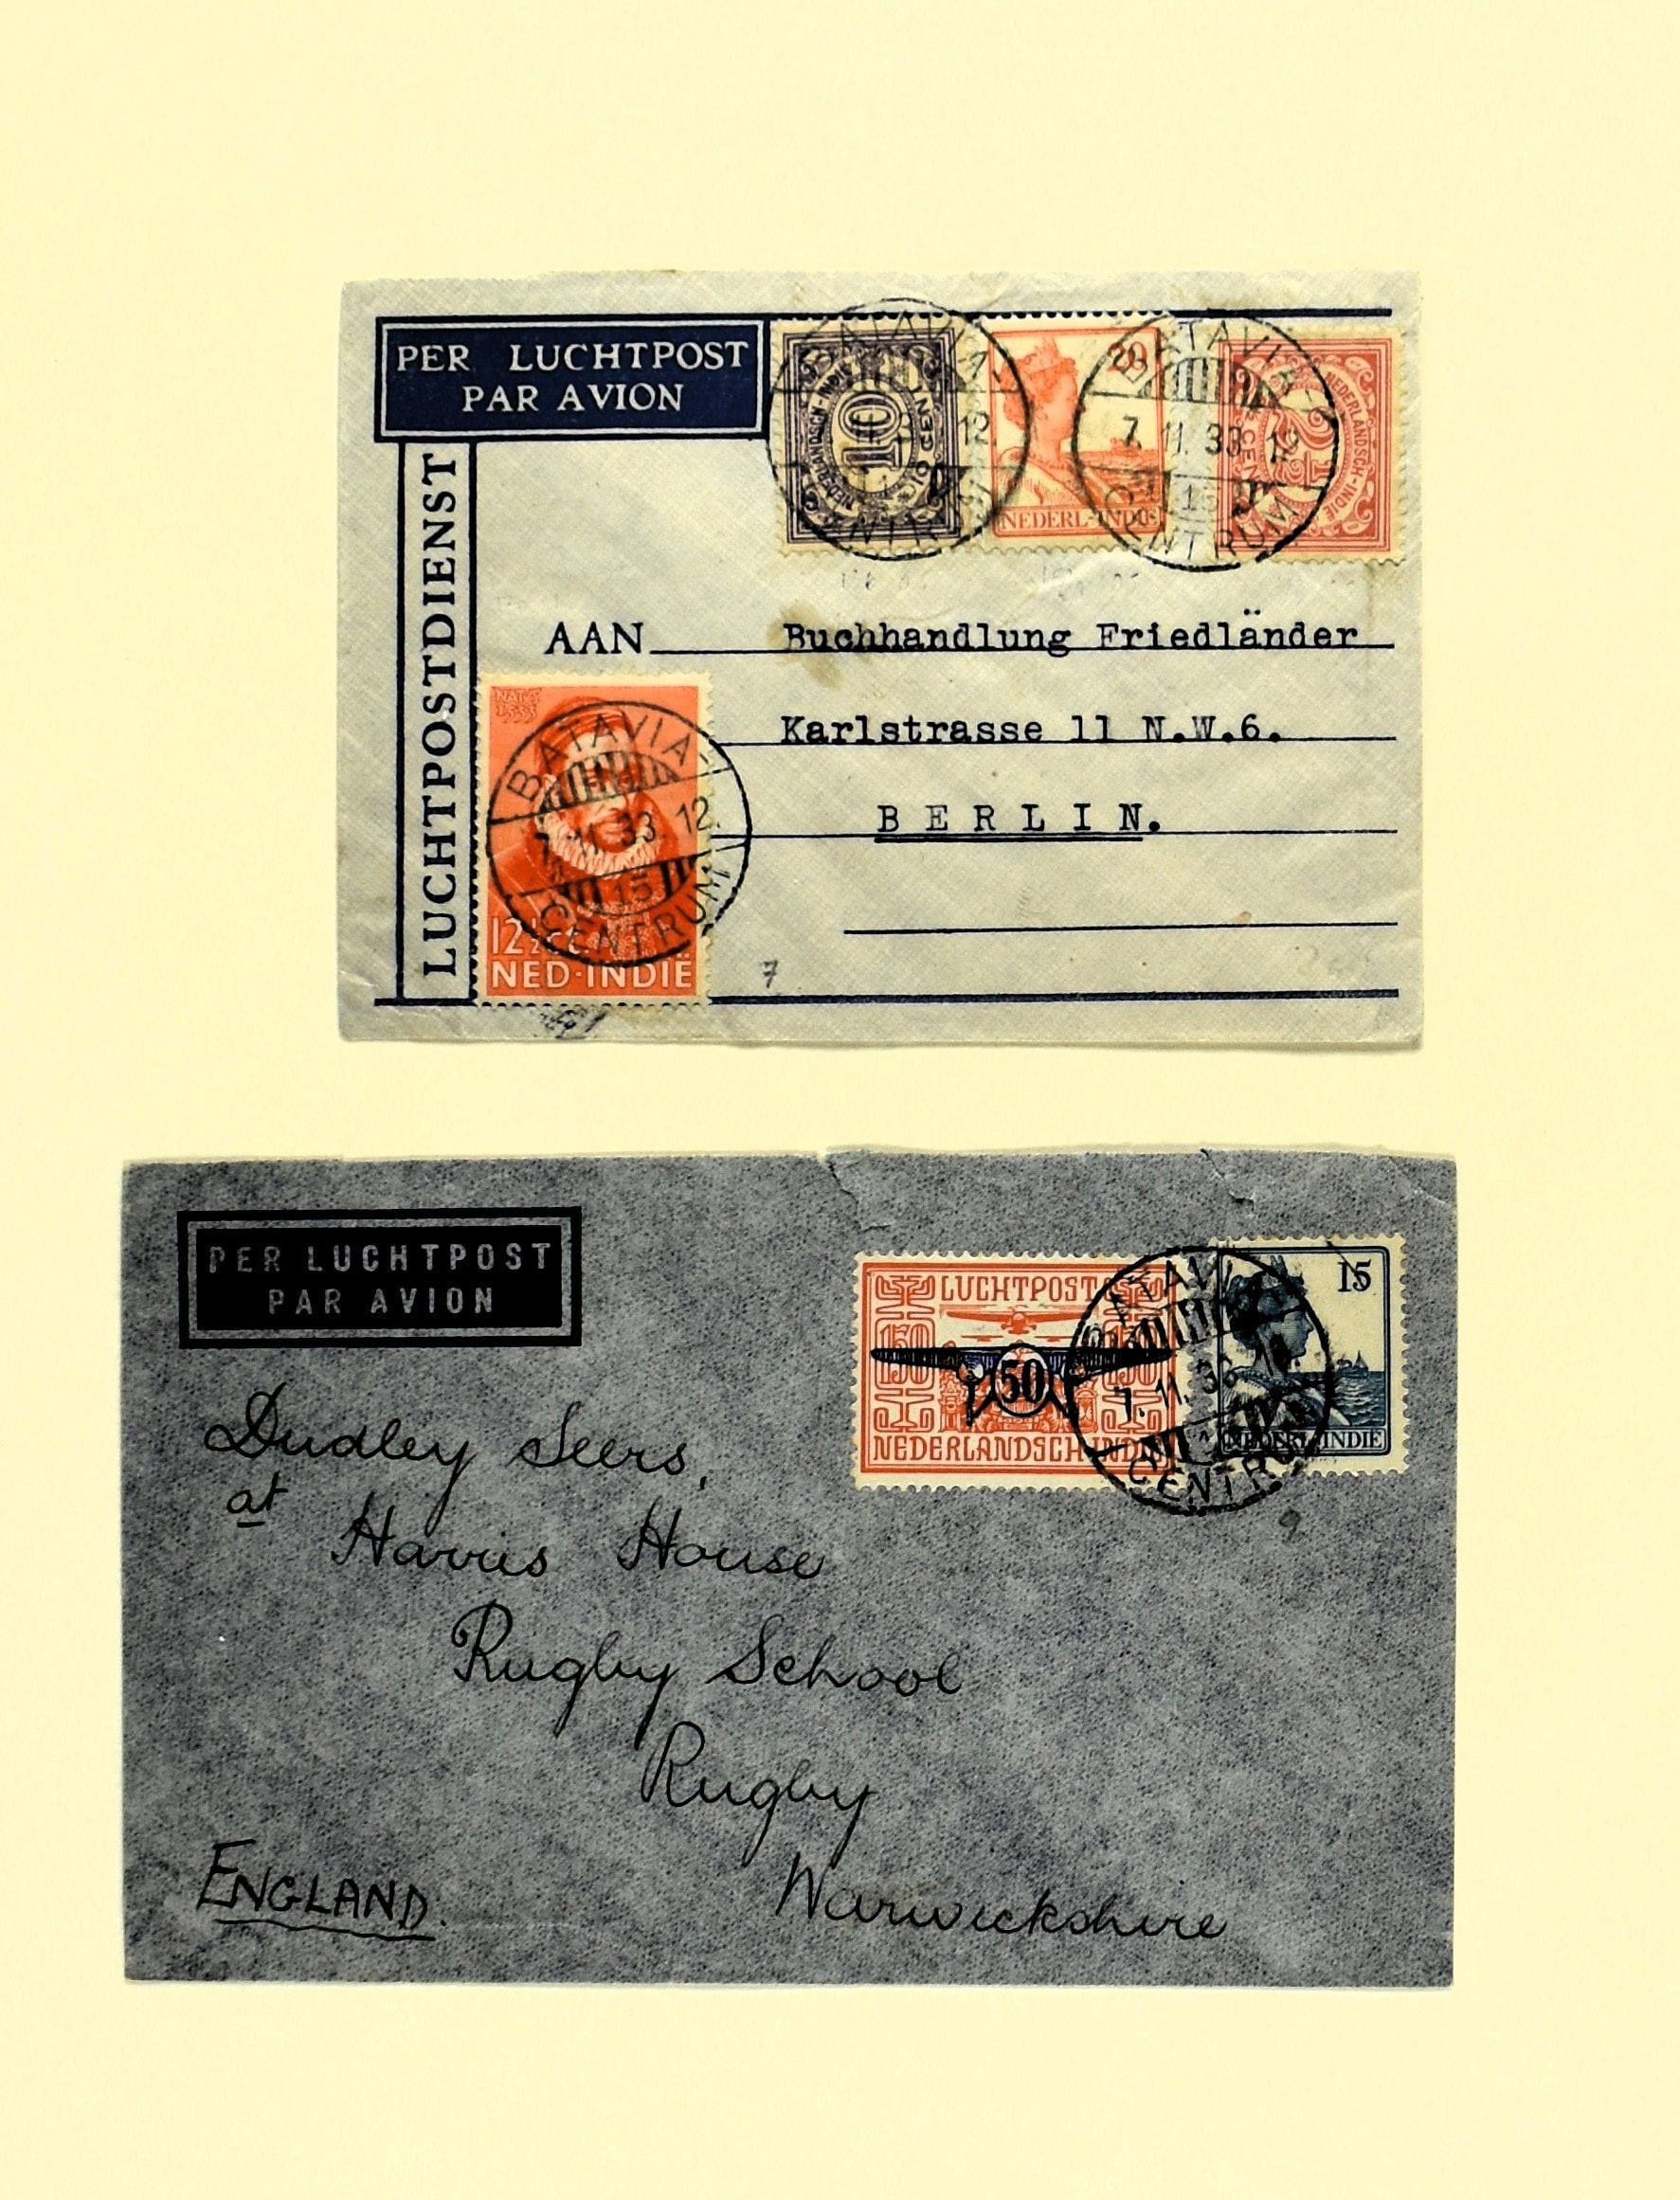 PER LUCHTPOST
PAR AVION
LUCHTPOSTDIENST
10
NEDERLANDSCH-INDIE
10 CENT
20
NEDERL-INDIE
2½
NEDERLANDSCH-INDIE
CENT
BATAVIA
12
CENTRUM
BATAVIA
7.11.33.12
15
CENTRUM
AAN Buchhandlung Friedländer
Karlstrasse 11 N.W.6.
BERLIN.
1533
BATAVIA
7.11.33.12
15
CENTRUM
12½
NED·INDIË
7
PER LUCHTPOST
PAR AVION
LUCHTPOST
150 150
50
NEDERLANDSCH-INDIË
15
NEDERL. INDIE
BATAVIA
7.11.33
CENTRUM
9
Dudley Seers,
at
Harris House
Rugby School
Rugby
Warwickshire
ENGLAND.